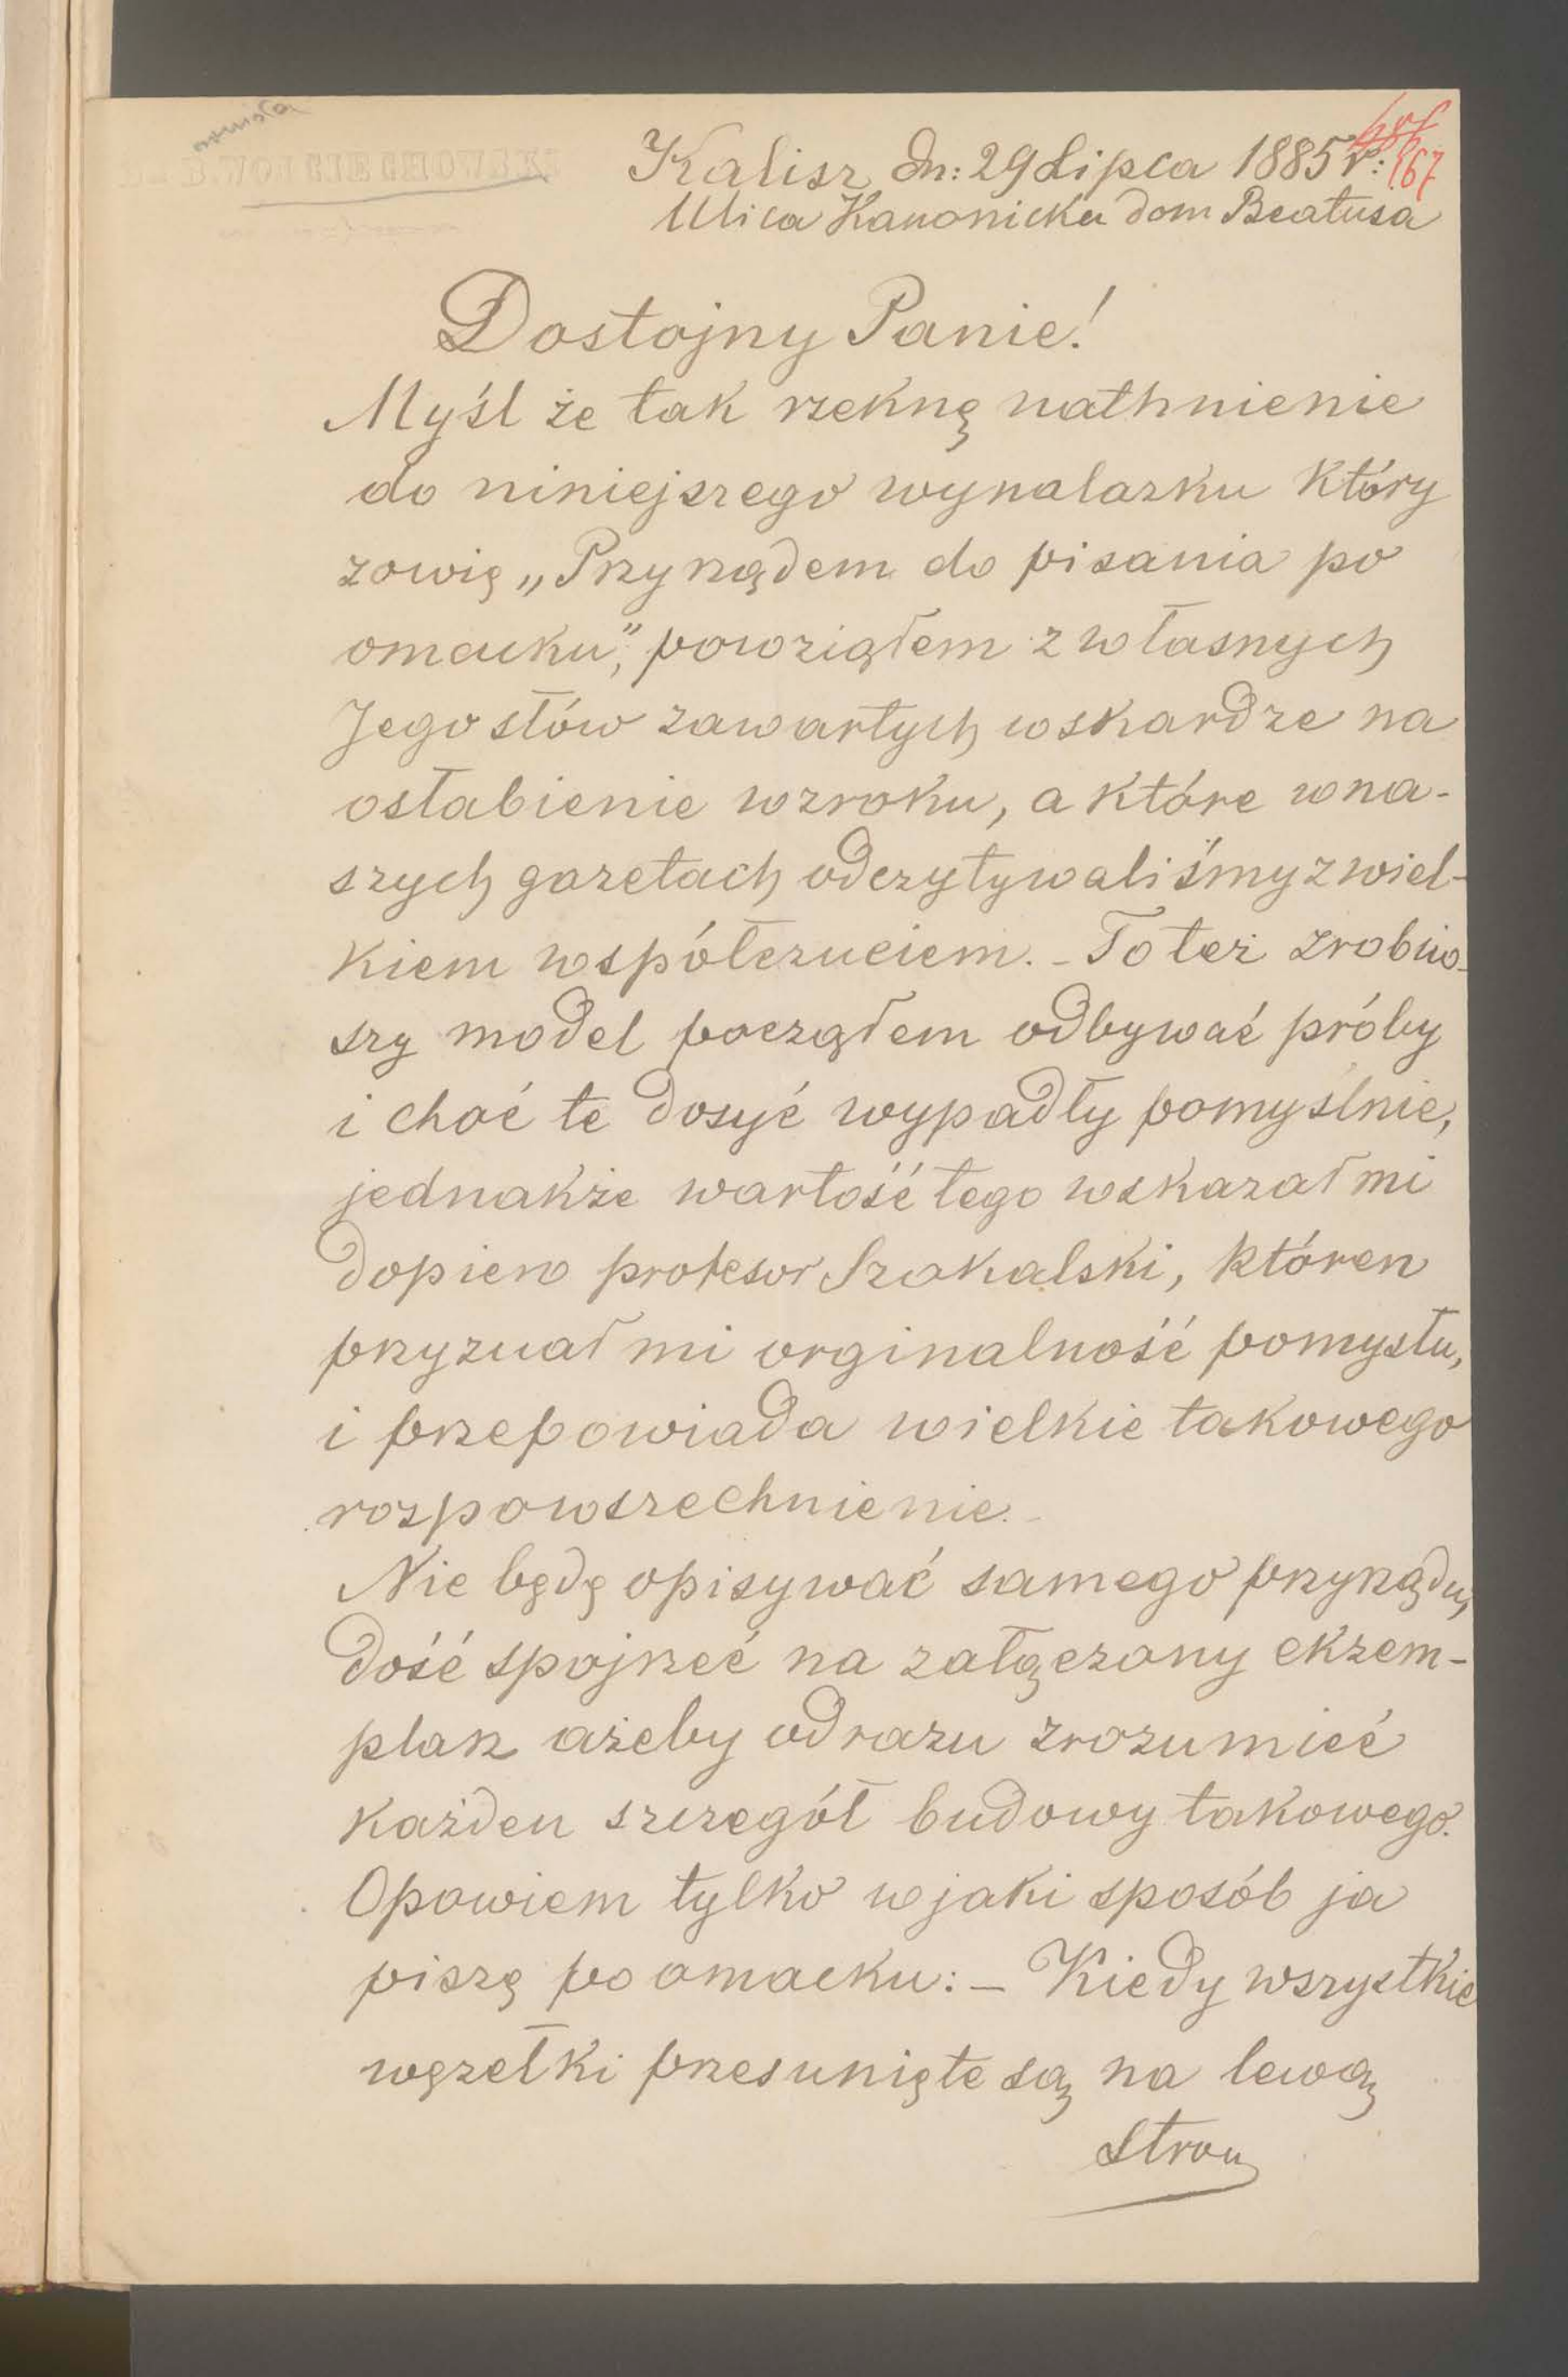 WOJCIECHOWSKI
Kalisz dn: 29 Lipca 1885 r: 167
Ulica Kanonicka dom Beatusa
Dostojny Panie!
Myśl że tak rzeknę nathnienie
do niniejszego wynalazku który
zowię „Przyrządem do pisania po
omacku”, powziąłem z własnych
Jego słów zawartych w skardze na
osłabienie wzroku, a które w na-
szych gazetach odczytywaliśmy z wiel-
kiem współczuciem. - To też zrobiw-
szy model począłem odbywać próby
i choć te dosyć wypadły pomyślnie,
jednakże wartość tego wskazał mi
dopiero profesor Szokalski, któren
przyznał mi orginalność pomysłu,
i przepowiada wielkie takowego
rozpowszechnienie.
Nie będę opisywać samego przyrządu,
dość spojrzeć na załączony ekzem-
plarz ażeby odrazu zrozumieć
każden szczegół budowy takowego.
Opowiem tylko w jaki sposób ja
piszę po omacku: - Kiedy wszystkie
węzełki przesunięte są na lewą
stron